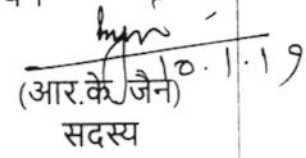 10.1.19
(आर.के जैन)
सदस्य